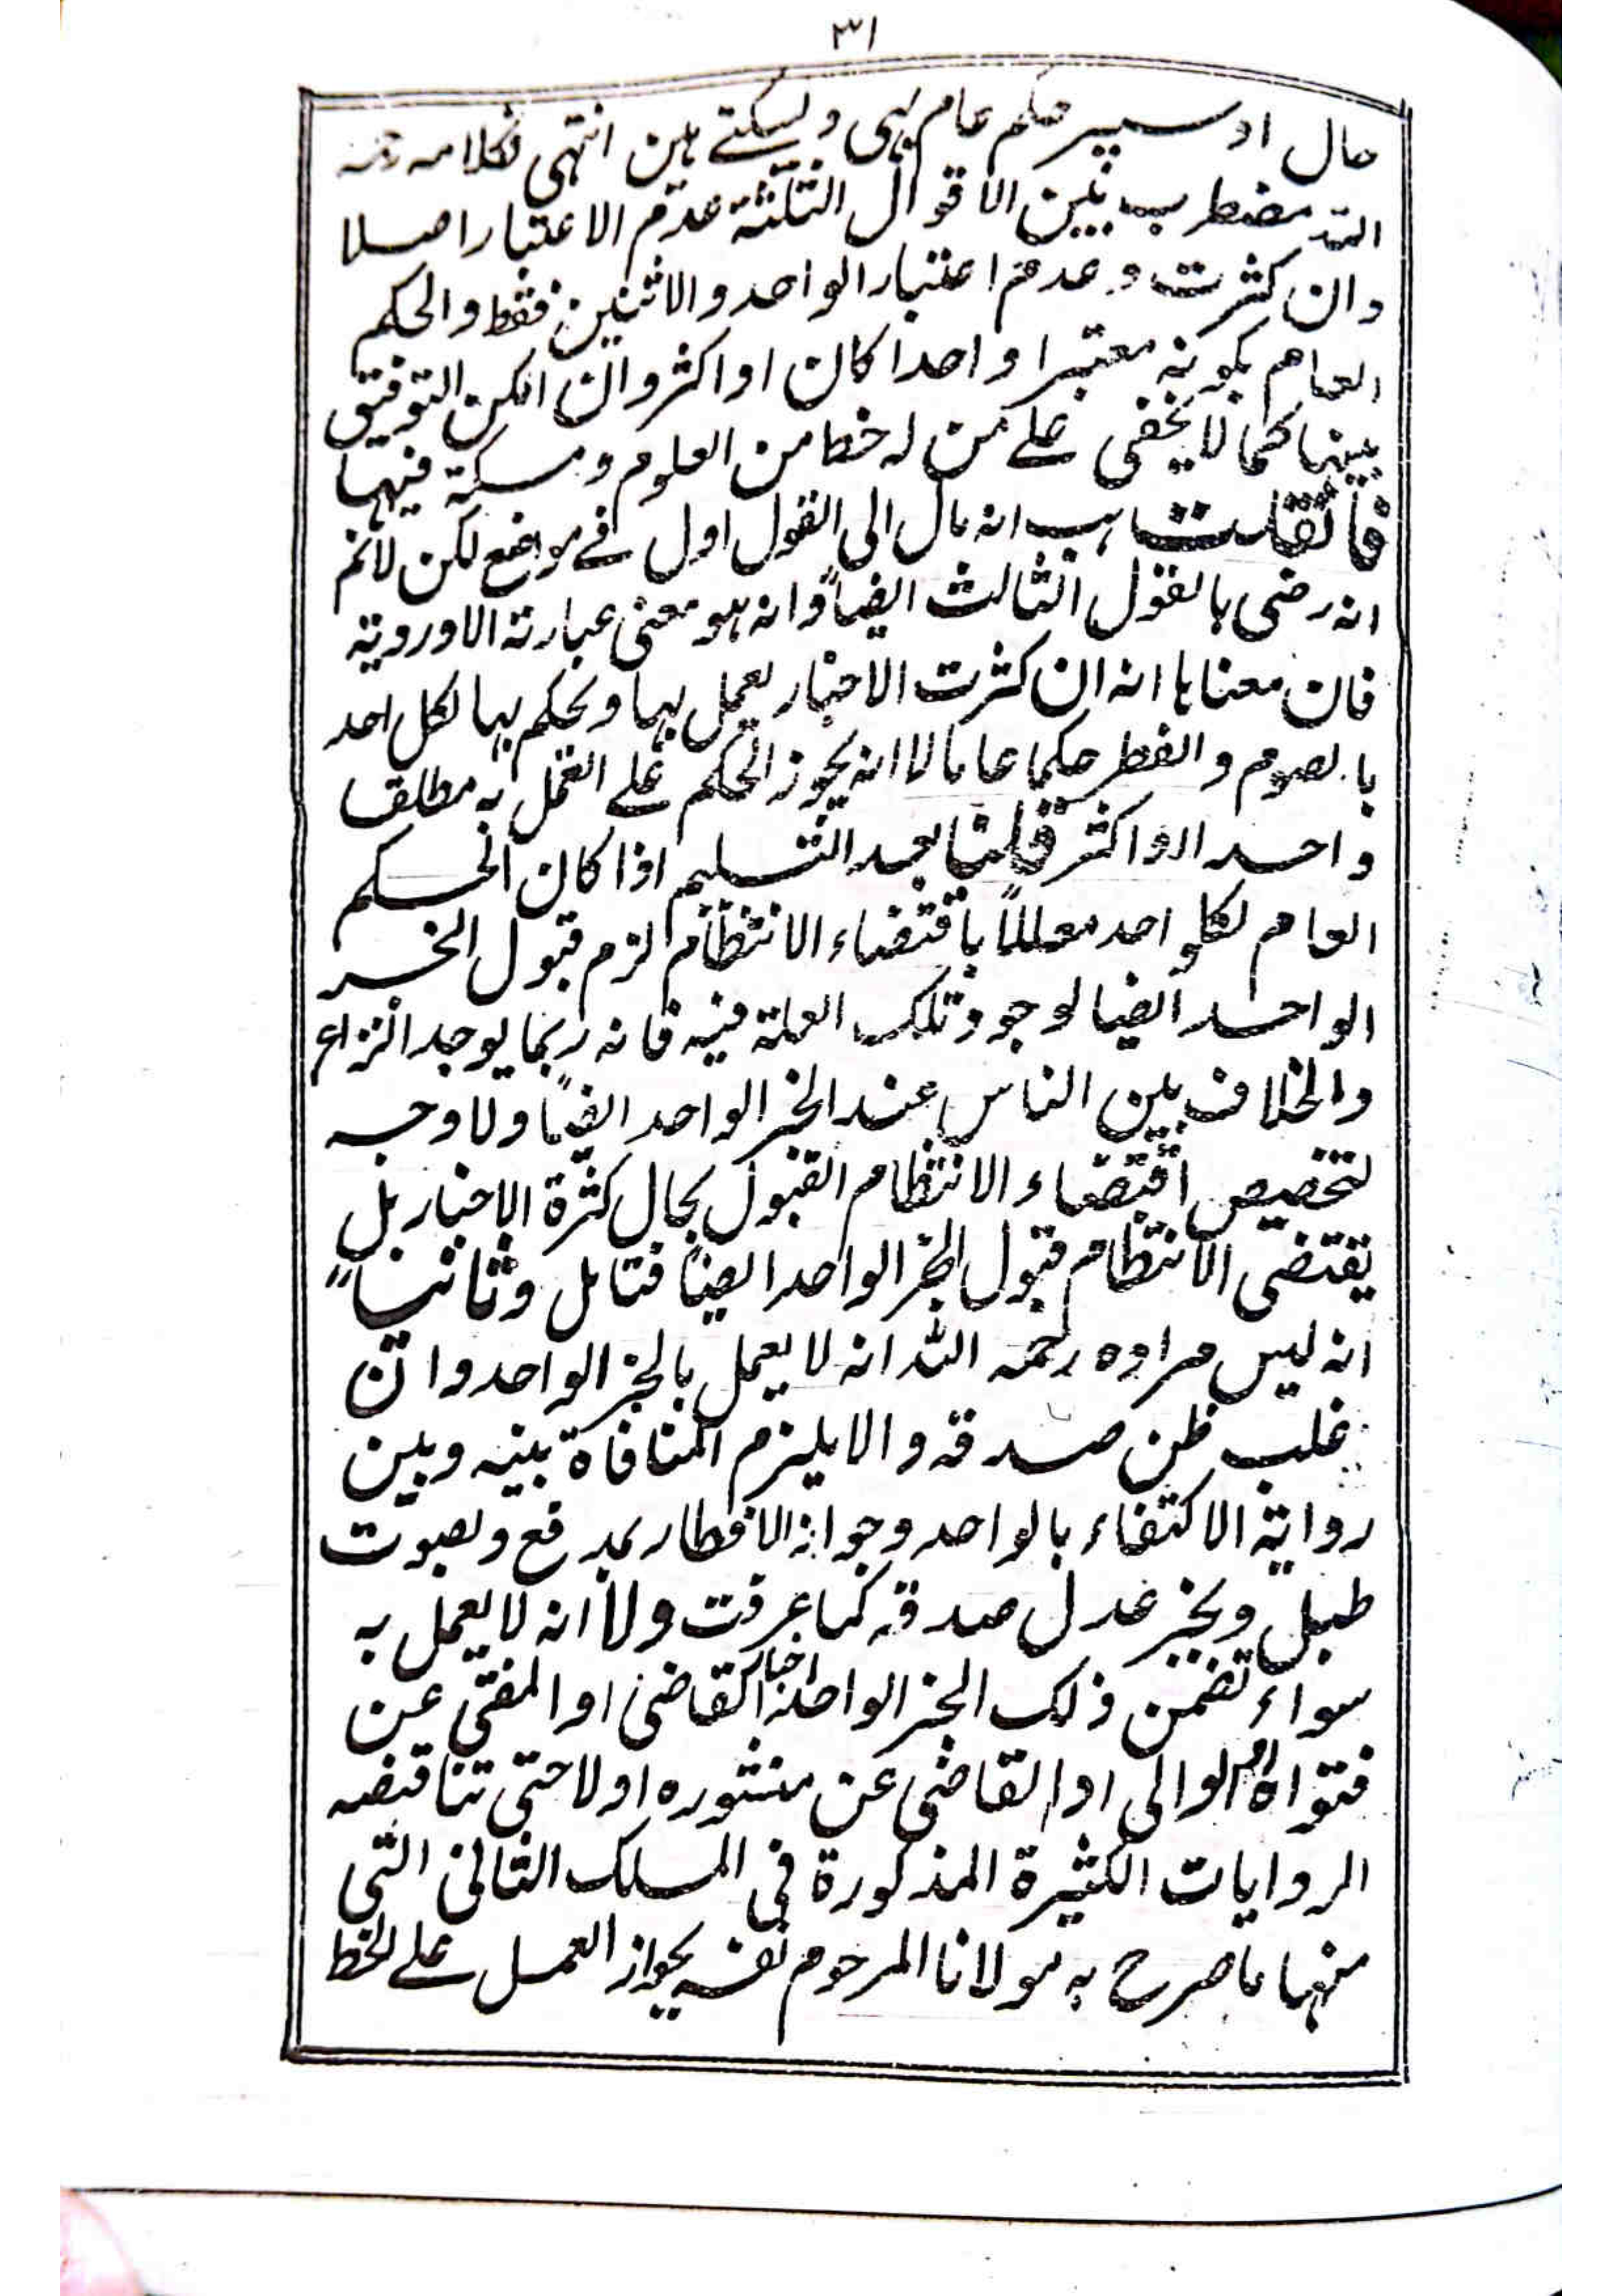 ٣١
حال اوسپر حکم عام بھی دیسکتے ہین انتہی فکلامہ رحمہ
اللہ مضطرب بین الاقوال الثلثة عدم الاعتبار اصلا
وان کثرت وعدم اعتبار الواحد والاثنین فقط والحکم
العام بکونہ معتبرا واحدا کان او اکثر وان امکن التوفیق
بینہا کما لا یخفی علے من لہ حظا من العلوم ومسکة فیہا
فان قلت ہب انہ مال الی القول اول فے مواضع لکن لانم
انہ رضی بالقول الثالث ایضاً وانہ ہو معنی عبارتہ الاوردیة
فان معناہا انہ ان کثرت الاخبار یعمل بہا ویحکم بہا لکل احد
بالصوم والفطر حکما عاما لا انہ یجوز الحکم علے العمل بہ مطلقا
واحدا او اکثر قلنا بعد التسلیم اذا کان الحکم
العام لکلو احد معللاً باقتضاء الانتظام لزم قبول الخبر
الواحد ایضا لوجود تلک العلة فیہ فانہ ربما یوجد النزاع
والخلاف بین الناس عند الخبر الواحد ایضاً ولا وجہ
لتخصیص اقتضاء الانتظام القبول بحال کثرة الاخبار بل
یقتضی الانتظام قبول الخبر الواحد ایضاً فتامل وثانیاً
انہ لیس مرادہ رحمہ اللہ انہ لا یعمل بالخبر الواحد وان
غلب ظن صدقہ والا یلزم المنافاة بینہ وبین
روایة الاکتفاء بالواحد وجواز الافطار بمدفع وبصوت
طبل وبخبر عدل صدقہ کما عرفت ولا انہ لا یعمل بہ
سواء تضمن ذلک الخبر الواحد اخبار القاضی او المفتی عن
فتواہ او الوالی او القاضی عن منشورہ اولا حتی تناقضہ
الروایات الکثیرة المذکورة فی المسلک الثانی التی
منہا ما صرح بہ مولانا المرحوم نفسہ بجواز العمل علے الخط